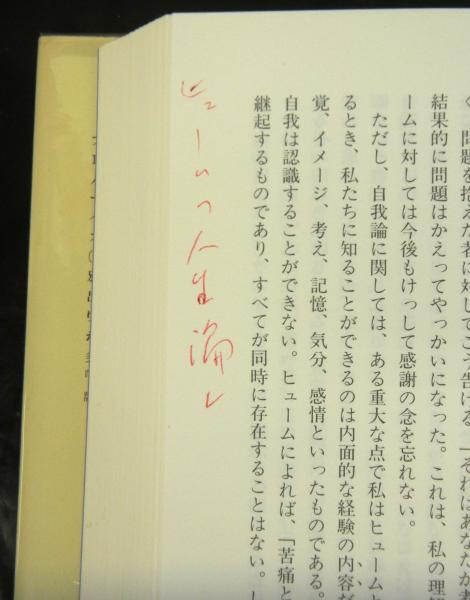 く、問題を抱えた者に対してこう告げる。「それはあなたが考
結果的に問題はかえってやっかいになった。これは、私の理解
ームに対しては今後もけっして感謝の念を忘れない。
ただし、自我論に関しては、ある重大な点で私はヒュームと
るとき、私たちに知ることができるのは内面的な経験の内容だ
覚、イメージ、考え、記憶、気分、感情といったものである。
自我は認識することができない。ヒュームによれば、「苦痛と
継起するものであり、すべてが同時に存在することはない。し
ヒュームの人生論